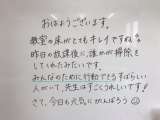 おはようございます。
教室の床がとてもキレイですねな
昨日の放課後に、誰かが掃除を
してくれたみたいです。
みんなのために行動できるすばらしい
人がいて、先生はすごくうれしいです!
さて、今日も元気にがんばろう